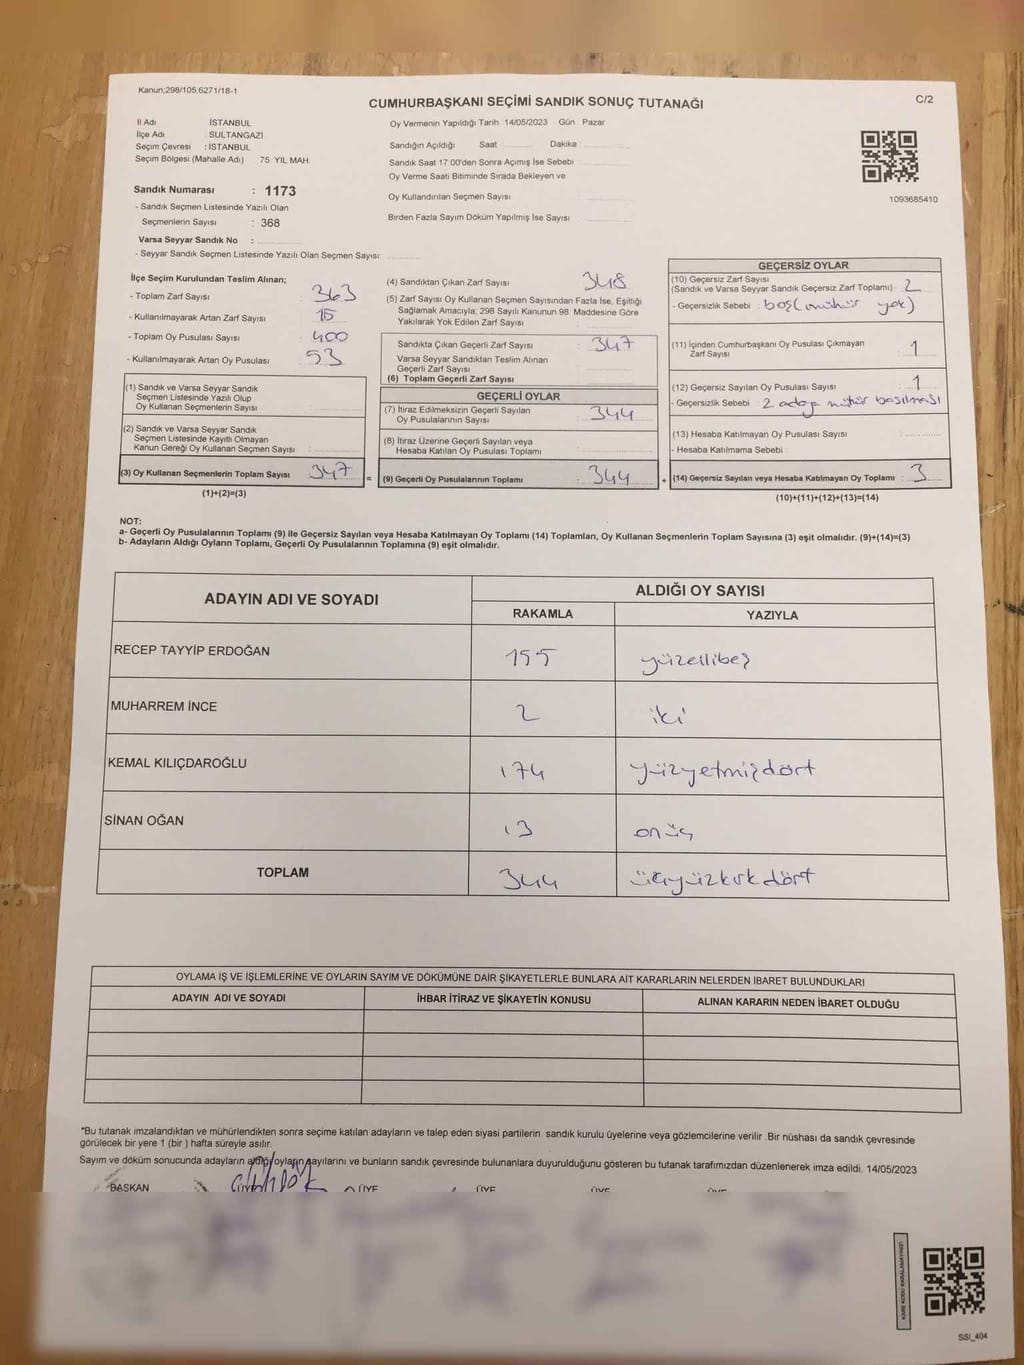 Kanun;298/105;6271/18-1
CUMHURBAŞKANI SEÇİMİ SANDIK SONUÇ TUTANAĞI
C/2
İl Adı İSTANBUL
İlçe Adı : SULTANGAZİ
Seçim Çevresi : İSTANBUL
Seçim Bölgesi (Mahalle Adı) 75. YIL MAH.
Oy Vermenin Yapıldığı Tarih 14/05/2023 Gün Pazar
Sandığın Açıldığı Saat Dakika
Sandık Saat 17:00'den Sonra Açımış İse Sebebi
Oy Verme Saati Bitiminde Sırada Bekleyen ve
Oy Kullandırılan Seçmen Sayısı
Birden Fazla Sayım Döküm Yapılmış İse Sayısı
1093685410
Sandık Numarası : 1173
- Sandık Seçmen Listesinde Yazılı Olan
Seçmenlerin Sayısı : 368
Varsa Seyyar Sandık No :
- Seyyar Sandık Seçmen Listesinde Yazılı Olan Seçmen Sayısı:
İlçe Seçim Kurulundan Teslim Alınan;
- Toplam Zarf Sayısı 363
- Kullanılmayarak Artan Zarf Sayısı : 15
- Toplam Oy Pusulası Sayısı : 400
- Kullanılmayarak Artan Oy Pusulası : 53
(1) Sandık ve Varsa Seyyar Sandık
Seçmen Listesinde Yazılı Olup
Oy Kullanan Seçmenlerin Sayısı :
(2) Sandık ve Varsa Seyyar Sandık
Seçmen Listesinde Kayıtlı Olmayan
Kanun Gereği Oy Kullanan Seçmen Sayısı :
(3) Oy Kullanan Seçmenlerin Toplam Sayısı 347
(1)+(2)=(3)
=
(4) Sandıktan Çıkan Zarf Sayısı 348
(5) Zarf Sayısı Oy Kullanan Seçmen Sayısından Fazla İse, Eşitliği
Sağlamak Amacıyla; 298 Sayılı Kanunun 98. Maddesine Göre
Yakılarak Yok Edilen Zarf Sayısı
Sandıkta Çıkan Geçerli Zarf Sayısı : 347
Varsa Seyyar Sandıktan Teslim Alınan
Geçerli Zarf Sayısı
(6) Toplam Geçerli Zarf Sayısı
GEÇERLİ OYLAR
(7) İtiraz Edilmeksizin Geçerli Sayılan
Oy Pusulalarının Sayısı : 344
(8) İtiraz Üzerine Geçerli Sayılan veya
Hesaba Katılan Oy Pusulası Toplamı
(9) Geçerli Oy Pusulalarının Toplamı : 344
+
GEÇERSİZ OYLAR
(10) Geçersiz Zarf Sayısı
(Sandık ve Varsa Seyyar Sandık Geçersiz Zarf Toplamı) : 2
- Geçersizlik Sebebi : boş(mühür yok)
(11) İçinden Cumhurbaşkanı Oy Pusulası Çıkmayan
Zarf Sayısı 1
(12) Geçersiz Sayılan Oy Pusulası Sayısı 1
- Geçersizlik Sebebi : 2 adaya mühür basılması
(13) Hesaba Katılmayan Oy Pusulası Sayısı
- Hesaba Katılmama Sebebi :
(14) Geçersiz Sayılan veya Hesaba Katılmayan Oy Toplamı : 3
(10)+(11)+(12)+(13)=(14)
NOT:
a- Geçerli Oy Pusulalarının Toplamı (9) ile Geçersiz Sayılan veya Hesaba Katılmayan Oy Toplamı (14) Toplamları, Oy Kullanan Seçmenlerin Toplam Sayısına (3) eşit olmalıdır. (9)+(14)=(3)
b- Adayların Aldığı Oyların Toplamı, Geçerli Oy Pusulalarının Toplamına (9) eşit olmalıdır.
ADAYIN ADI VE SOYADI
ALDIĞI OY SAYISI
RAKAMLA YAZIYLA
RECEP TAYYİP ERDOĞAN 155 yüzellibeş
MUHARREM İNCE 2 iki
KEMAL KILIÇDAROĞLU 174 yüzyetmişdört
SİNAN OĞAN 13 onüç
TOPLAM 344 üçyüzkırkdört
OYLAMA İŞ VE İŞLEMLERİNE VE OYLARIN SAYIM VE DÖKÜMÜNE DAİR ŞİKAYETLERLE BUNLARA AİT KARARLARIN NELERDEN İBARET BULUNDUKLARI
ADAYIN ADI VE SOYADI İHBAR İTİRAZ VE ŞİKAYETİN KONUSU ALINAN KARARIN NEDEN İBARET OLDUĞU
*Bu tutanak imzalandıktan ve mühürlendikten sonra seçime katılan adayların ve talep eden siyasi partilerin sandık kurulu üyelerine veya gözlemcilerine verilir. Bir nüshası da sandık çevresinde
görülecek bir yere 1 (bir ) hafta süreyle asılır.
Sayım ve döküm sonucunda adayların aldığı oyların sayılarını ve bunların sandık çevresinde bulunanlara duyurulduğunu gösteren bu tutanak tarafımızdan düzenlenerek imza edildi. 14/05/2023
BAŞKAN ÜYE ÜYE ÜYE ÜYE
SSI_404